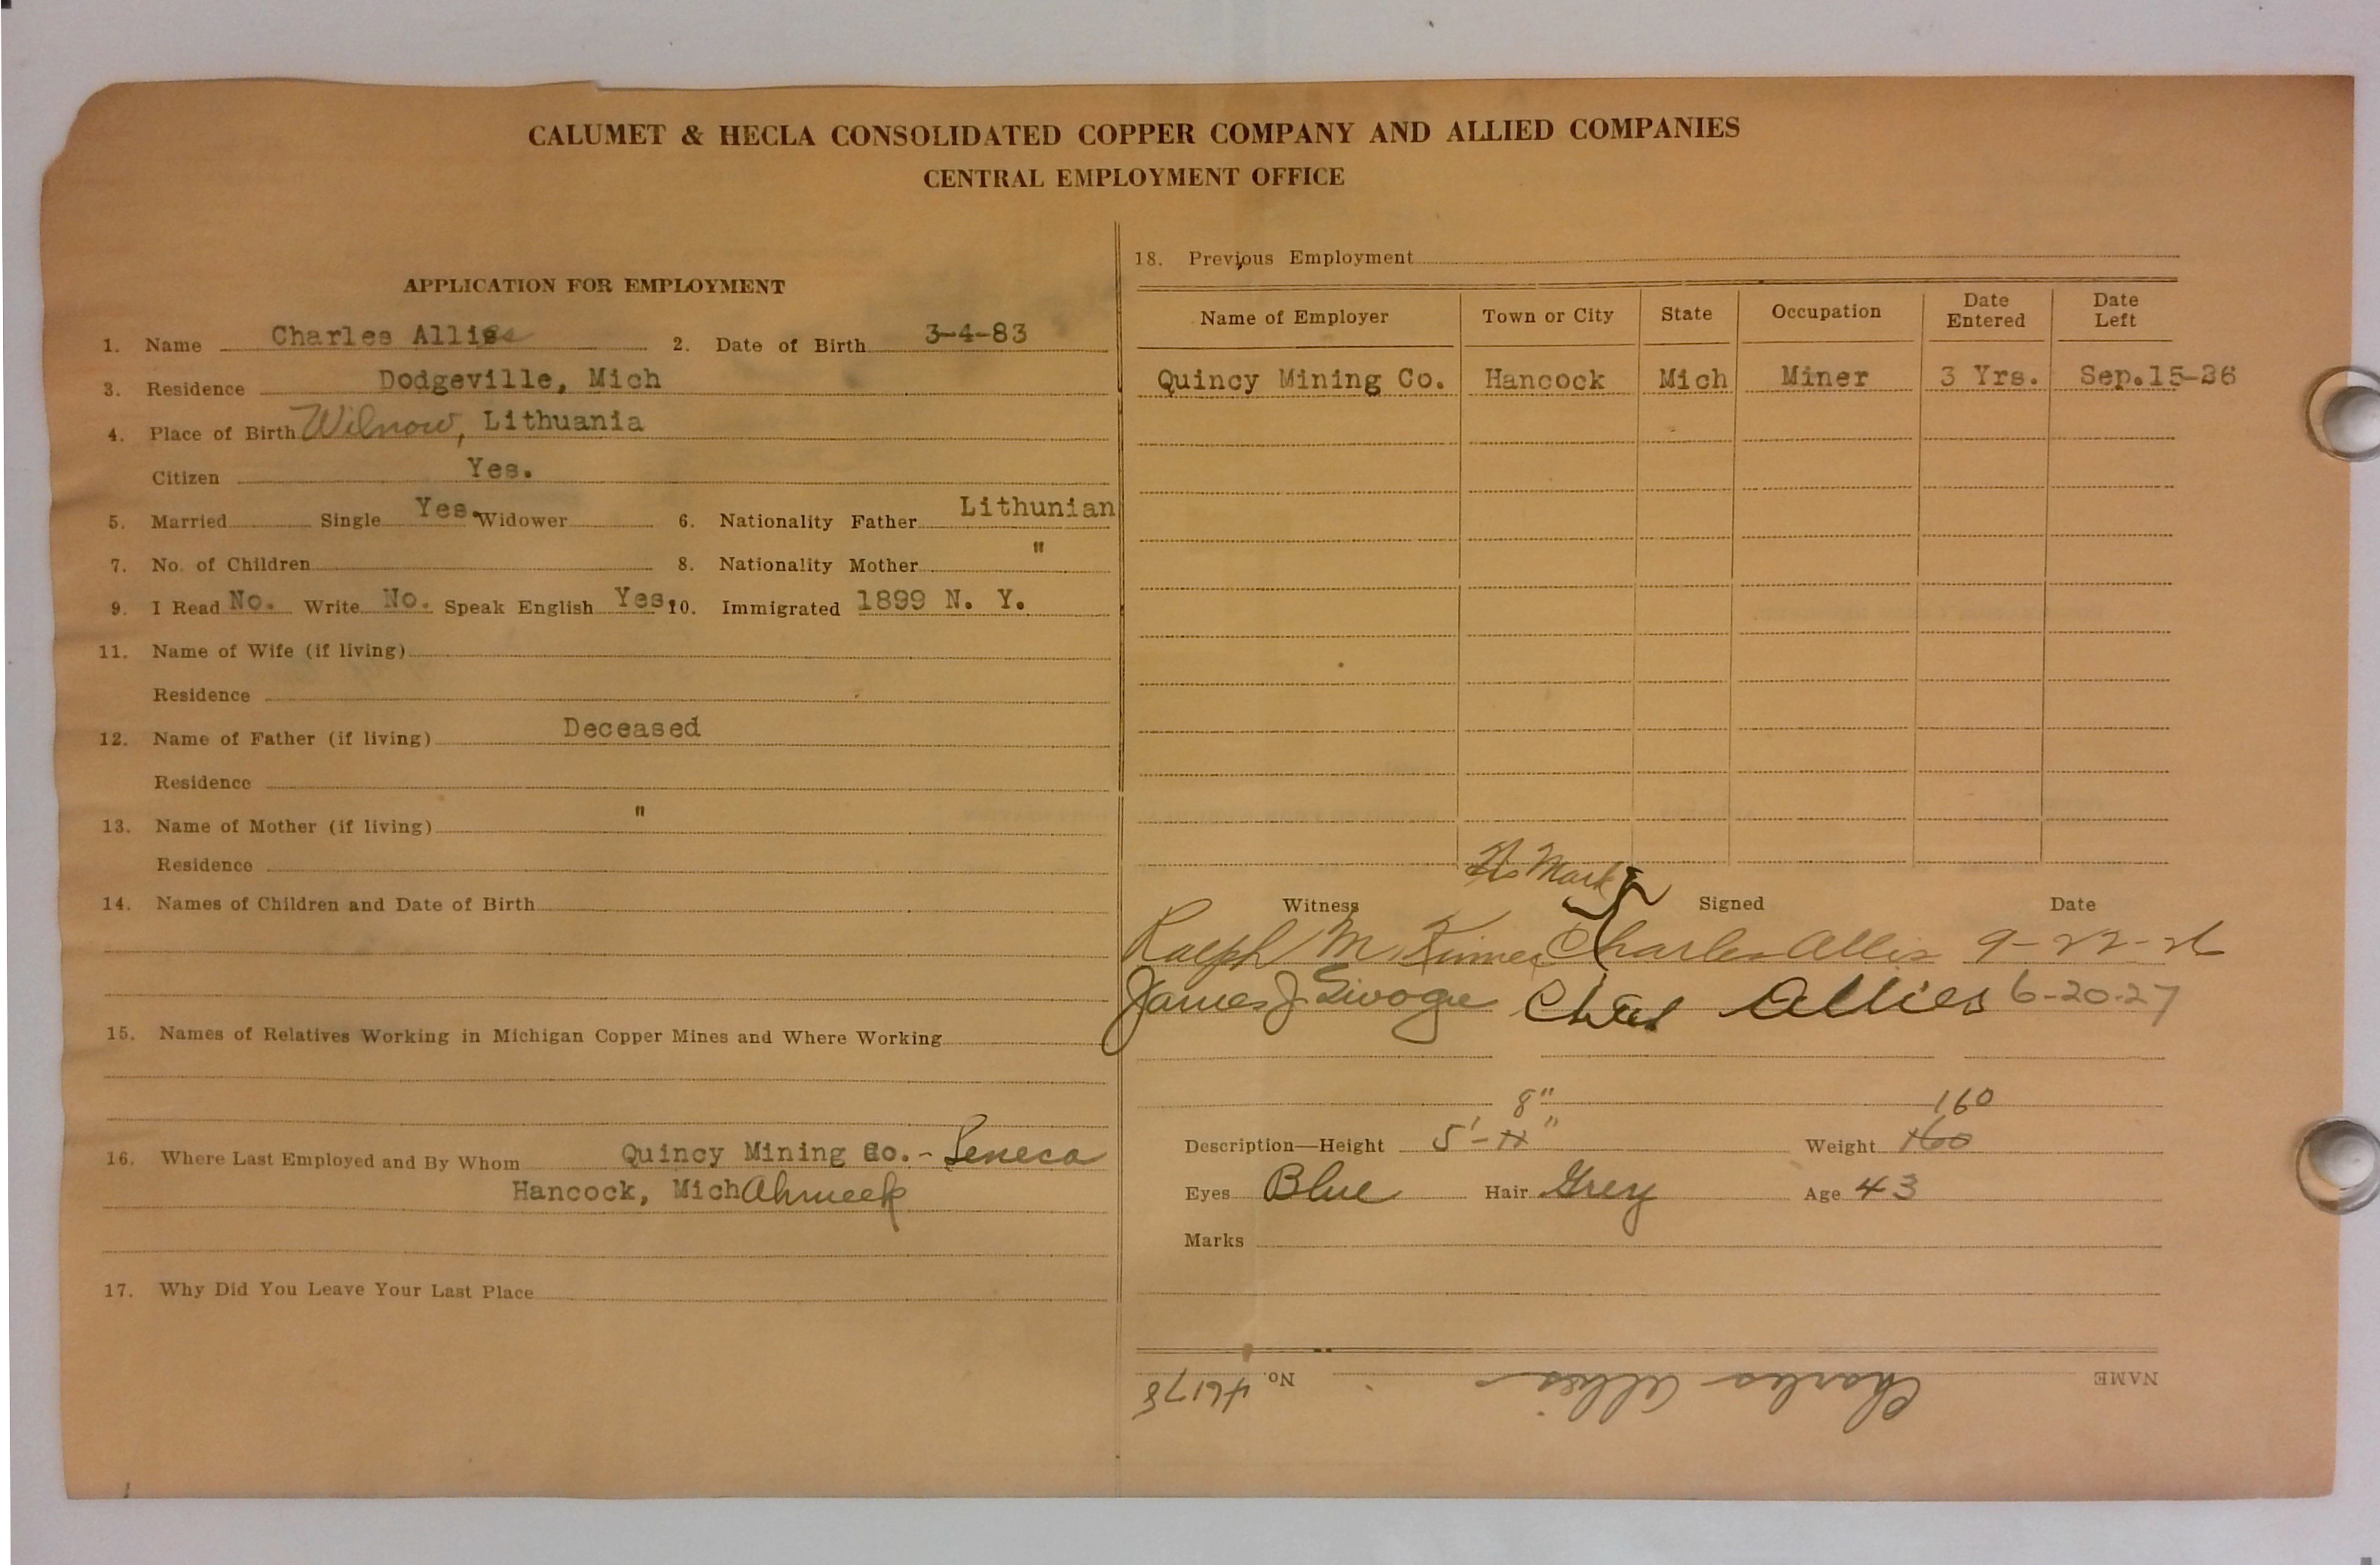 CALUMET & HECLA CONSOLIDATED COPPER COMPANY AND ALLIED COMPANIES
CENTRAL EMPLOYMENT OFFICE
APPLICATION FOR EMPLOYMENT
1. Name Charles Allies 2. Date of Birth 3-4-83
3. Residence Dodgeville, Mich
4. Place of Birth Wilnow, Lithuania
Citizen Yes.
5. Married Single Yes. Widower 6. Nationality Father Lithunian
7. No. of Children 8. Nationality Mother "
9. I Read No. Write No. Speak English Yes. 10. Immigrated 1899 N. Y.
11. Name of Wife (if living)
Residence
12. Name of Father (if living) Deceased
Residence
13. Name of Mother (if living) "
Residence
14. Names of Children and Date of Birth
15. Names of Relatives Working in Michigan Copper Mines and Where Working
16. Where Last Employed and By Whom Quincy Mining Co. - Seneca
Hancock, Mich Ahmeek
17. Why Did You Leave Your Last Place
18. Previous Employment
Name of Employer Town or City State Occupation Date Entered Date Left
Quincy Mining Co. Hancock Mich Miner 3 Yrs. Sep.15-26
His Mark
Witness Signed Date
Ralph M Charles Allis 9-22-26
James J. Chas Allies 6-20-27
8" 160
Description—Height 5'-11" Weight 160
Eyes Blue Hair Grey Age 43
Marks
NAME Charles Allies No. 46178